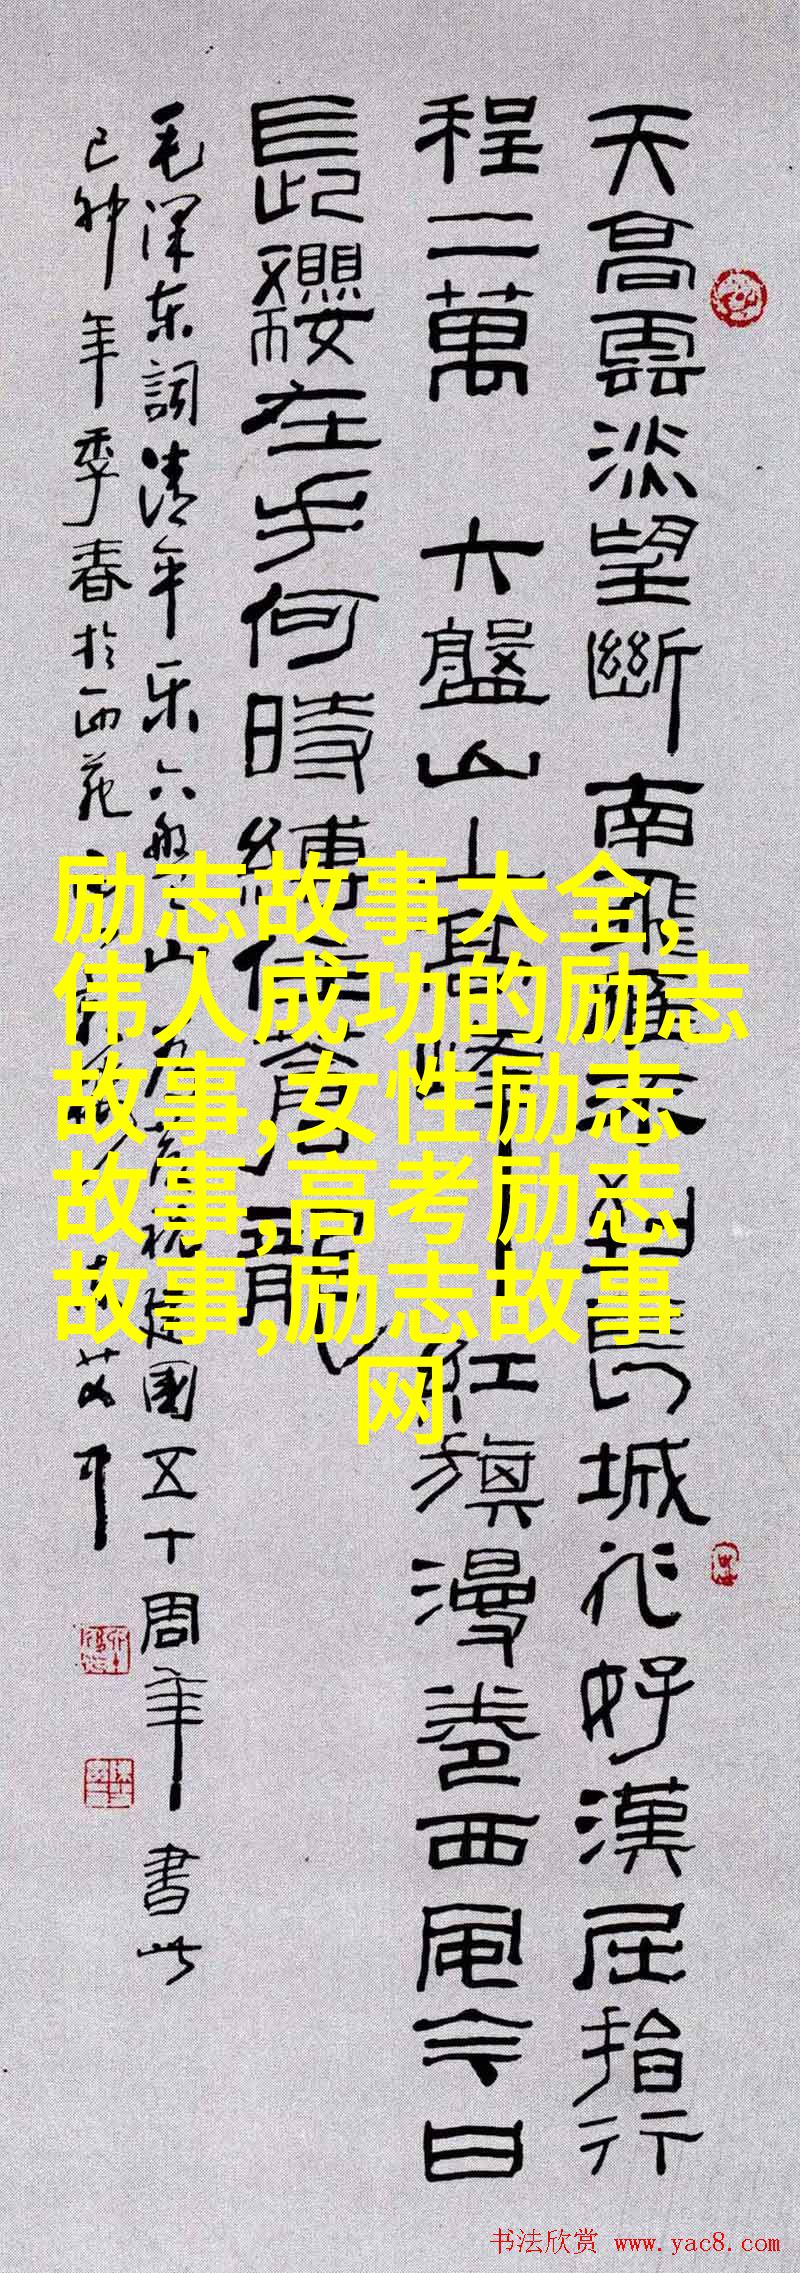 天高雲淡望斷南飛雁不到長城非好漢屈指行
程二萬 六盤山上高峰紅旗漫卷西風今日
長纓在手何時縛住蒼龍
毛澤东詞清平乐六盤山为慶祝建國五十周年書此
己卯年季春於西苑
励志故事大全,
伟人成功的励志
故事,女性励志
故事,高考励志
故事,励志故事
网
书法欣赏 www.yac8.com